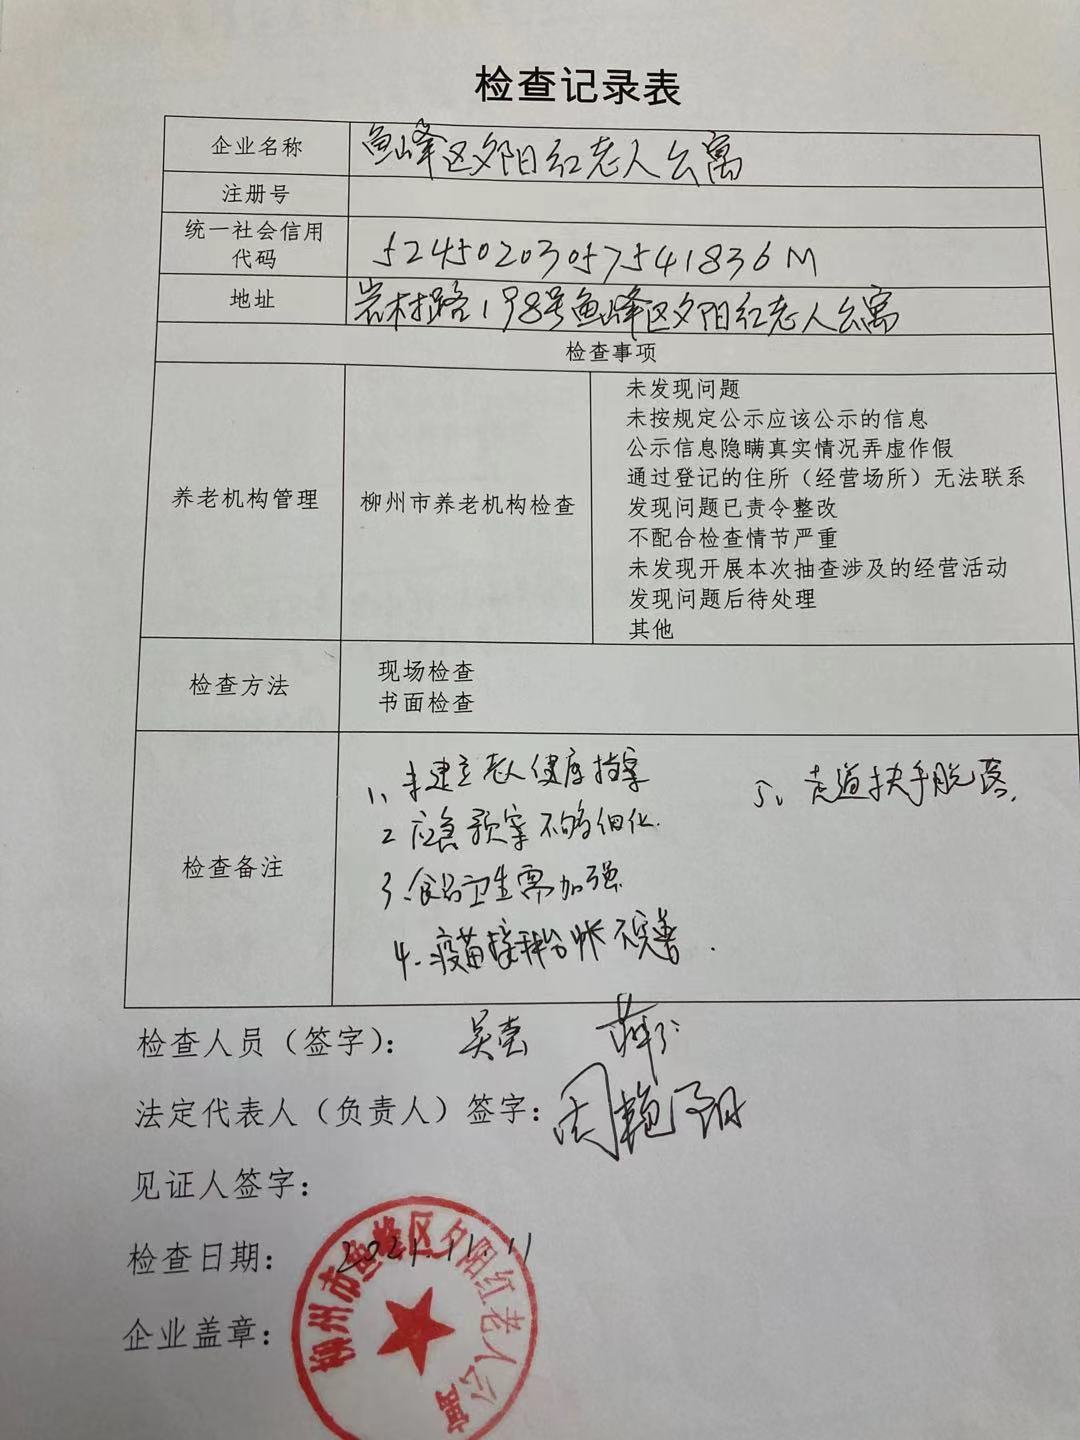 检查记录表
企业名称 鱼峰区夕阳红老人公寓
注册号
统一社会信用
代码
52450203057541836M
地址 岩村路198号鱼峰区夕阳红老人公寓
检查事项
养老机构管理
柳州市养老机构检查
未发现问题
未按规定公示应该公示的信息
公示信息隐瞒真实情况弄虚作假
通过登记的住所（经营场所）无法联系
发现问题已责令整改
不配合检查情节严重
未发现开展本次抽查涉及的经营活动
发现问题后待处理
其他
检查方法
现场检查
书面检查
检查备注
1、未建立老人健康档案
2 应急预案不够细化.
3、食品卫生需加强
4、疫苗接种台帐不完善.
5、走道扶手脱落.
检查人员（签字）： 吴
法定代表人（负责人）签字：周艳阳
见证人签字：
检查日期： 2021.11.11
企业盖章：
柳州市鱼峰区夕阳红老人公寓